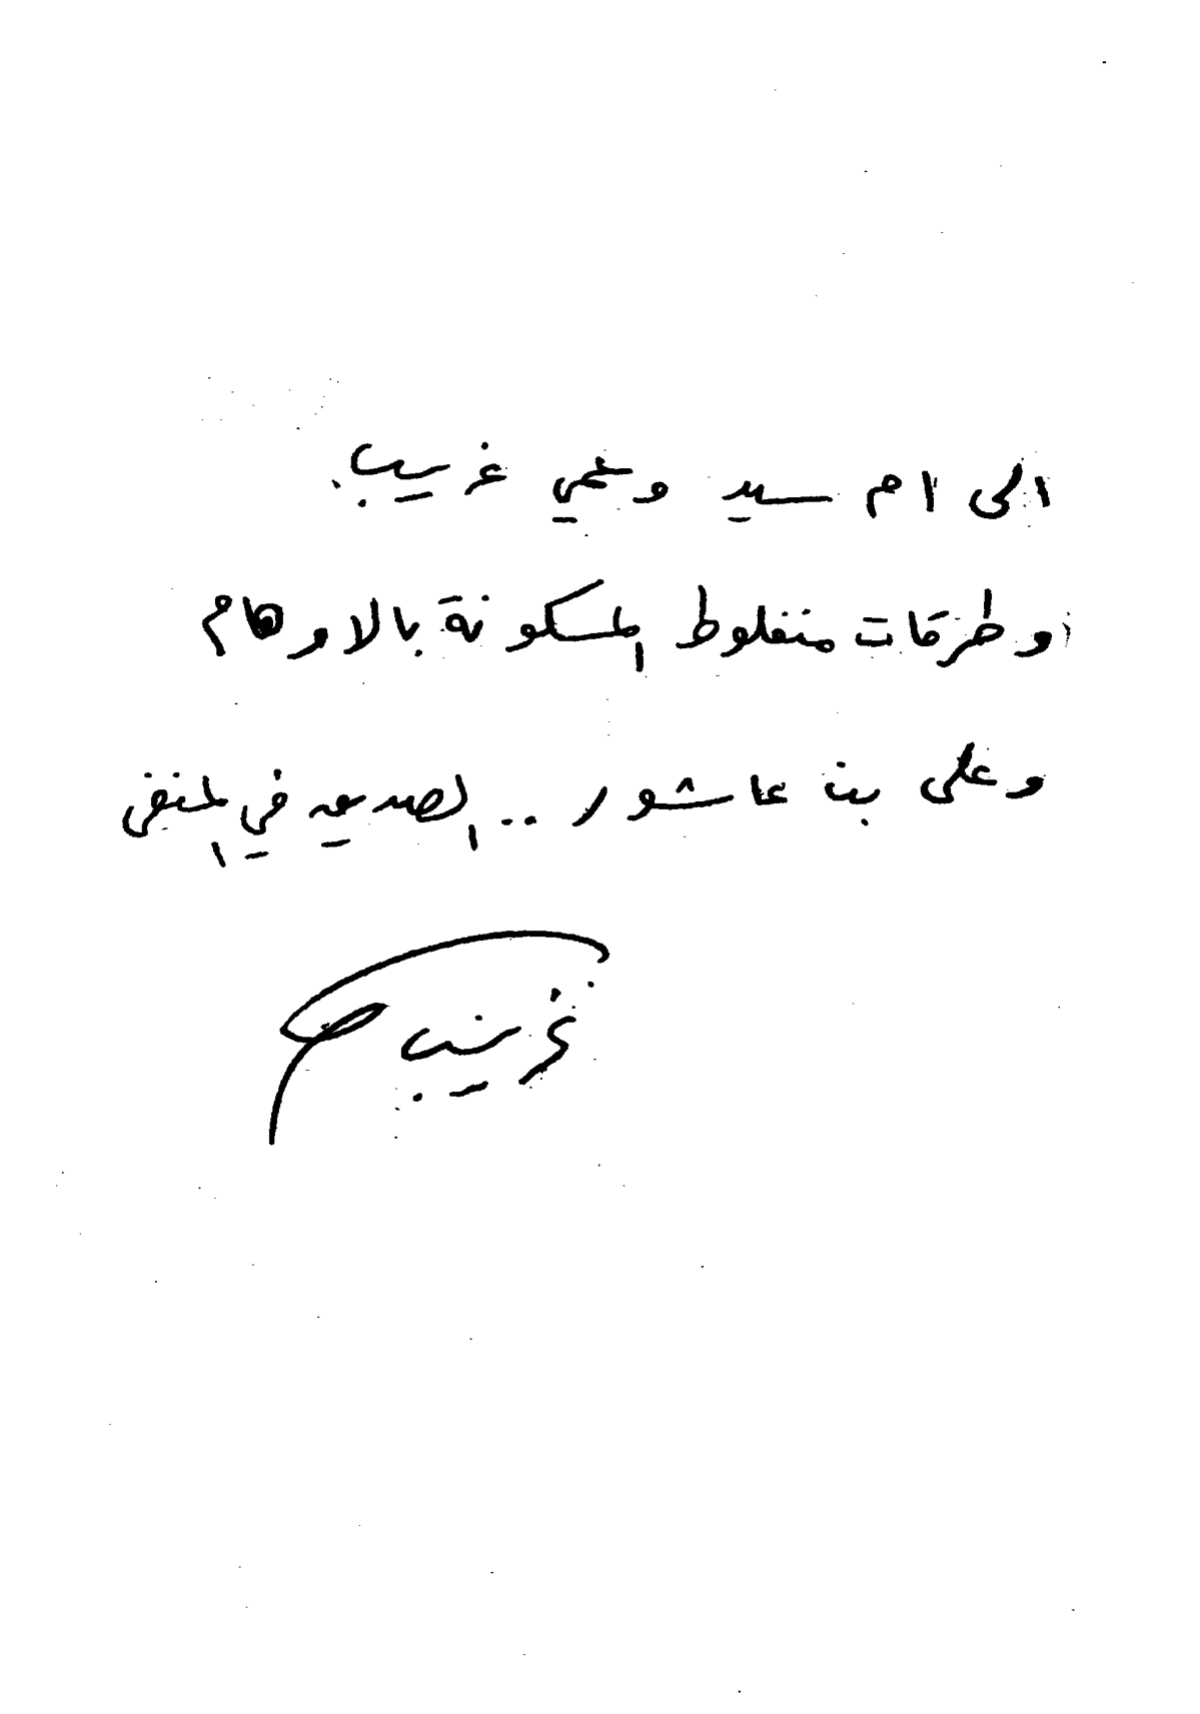 الى ام سيد وعمي غريب.
وطرقات منفلوط المسكونة بالاوهام
وعلى بن عاشور .. الصديق في المنفى
غريب